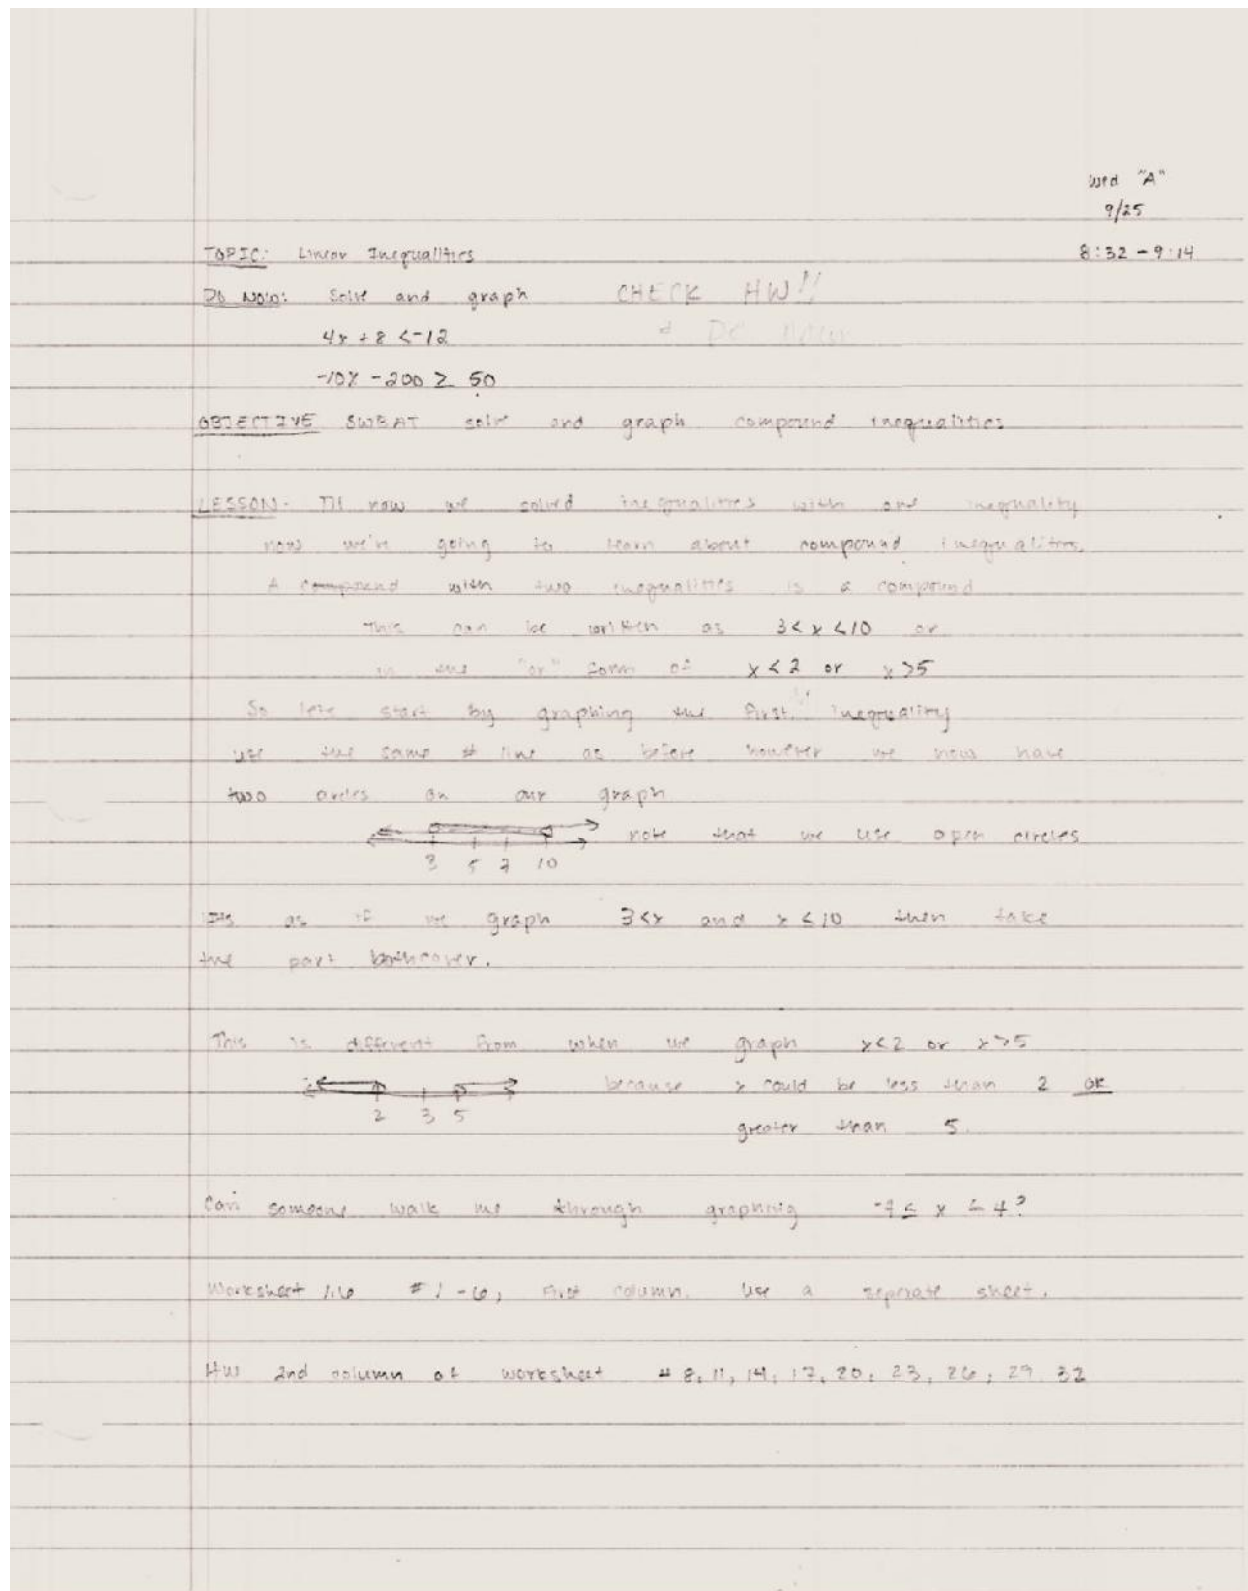 Wed "A"
9/25
8:32 - 9:14
TOPIC: Linear Inequalities
DO NOW: Solve and graph CHECK HW!!
4x + 8 < -12
-10x - 200 ≥ 50
OBJECTIVE SWBAT solve and graph compound inequalities
LESSON- Til now we solved inequalities with one inequality
now we're going to learn about compound inequalities.
A compound with two inequalities is a compound
This can be written as 3 < x < 10 or
in the "or" form of x < 2 or x > 5
So lets start by graphing the first inequality
use the same # line as before however we now have
two circles on our graph
note that we use open circles
3 5 7 10
Its as if we graph 3 < x and x ≤ 10 then take
the part both cover.
This is different from when we graph x < 2 or x > 5
because x could be less than 2 OR
2 3 5
greater than 5.
Can someone walk me through graphing ≤ x ≤ 4?
Worksheet 1.6 # 1 - 6, First column. Use a seperate sheet.
HW 2nd column of worksheet # 8, 11, 14, 17, 20, 23, 26, 29 32